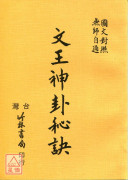 國文對照
無師自通
文王神卦秘訣
台灣
竹林書局